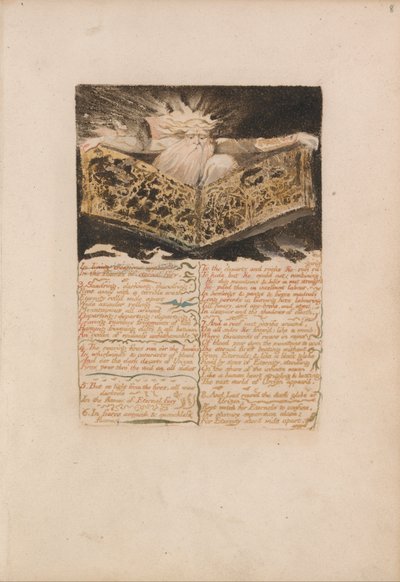 8
In living creations appear'd
In the flames of eternal fury.
3. Sund'ring, dark'ning, thund'ring!
Rent away with a terrible crash
Eternity roll'd wide apart
Wide asunder rolling
Mountainous all around
Departing; departing; departing:
Leaving ruinous fragments of life
Hanging frowning cliffs & all between
An ocean of voidness unfathomable
4. The roaring fires ran o'er the heav'ns
In whirlwinds & cataracts of blood
And o'er the dark desarts of Urizen
Fires pour thro' the void on all sides
5. But no light from the fires. all was
darkness
In the flames of Eternal fury
6. In fierce anguish & quenchless
flames
To the desarts and rocks He ran
To hide, but He could not: combining
He dug mountains & hills in vast strength
He piled them in incessant labour,
In howlings & pangs & fierce madness
Long periods in burning fires labouring
Till hoary, and age-broke, and aged,
In despair and the shadows of death.
7. And a roof, vast petrific around,
On all sides He fram'd: like a womb;
Where thousands of rivers in veins
Of blood pour down the mountains to cool
The eternal fires beating without
From Eternals; & like a black globe
View'd by sons of Eternity, standing
On the shore of the infinite ocean
Like a human heart strugling & beating
The vast world of Urizen appear'd.
8. And Los round the dark globe of
Urizen,
Kept watch for Eternals to confine,
The obscure separation alone;
For Eternity stood wide apart,